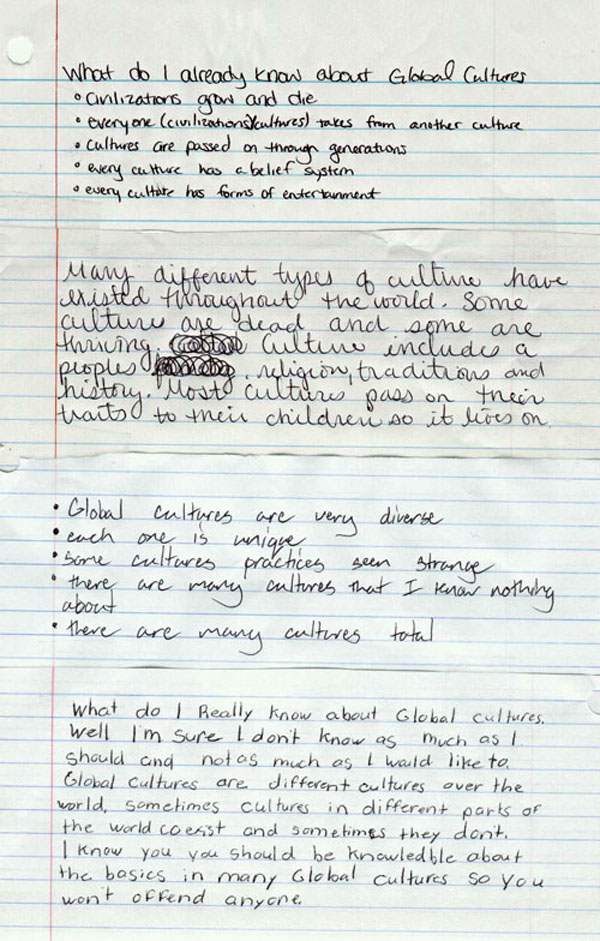 What do I already know about Global Cultures
• Civilizations grow and die
• everyone (civilizations)(cultures) takes from another culture
• Cultures are passed on through generations
• every culture has a belief system
• every culture has forms of entertainment
Many different types of culture have
existed throughout the world. Some
culture are dead and some are
thriving. Culture includes a
peoples religion, traditions and
history. Most cultures pass on their
traits to their children so it lives on
• Global cultures are very diverse
• each one is unique
• some cultures practices seen strange
• there are many cultures that I know nothing
about
• there are many cultures total
What do I Really know about Global cultures.
Well I'm sure I don't know as much as I
should and not as much as I would like to.
Global Cultures are different cultures over the
world, sometimes cultures in different parts of
the world coexist and sometimes they don't.
I know you you should be knowledble about
the basics in many Global cultures so you
won't offend anyone.